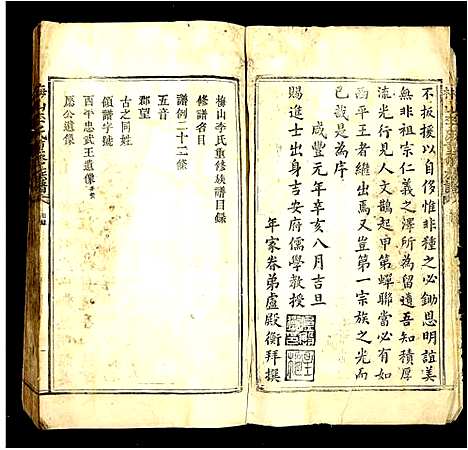 不扳援以自侈惟非種之必鋤恩明誼美
無非祖宗仁義之澤所為留遺吾知積厚
流光行見人文鵲起甲第蟬聯當必有如
西平王者繼出焉又豈第一宗族之光而
已哉是為序
咸豐元年辛亥八月吉旦
賜進士出身吉安府儒學教授
年家眷弟盧殿衡拜撰
梅山李氏重修族譜目錄
修譜名目
譜例二十二條
五音
郡望
古之同姓
領譜字號
西平忠武王遺像
愿公遺像